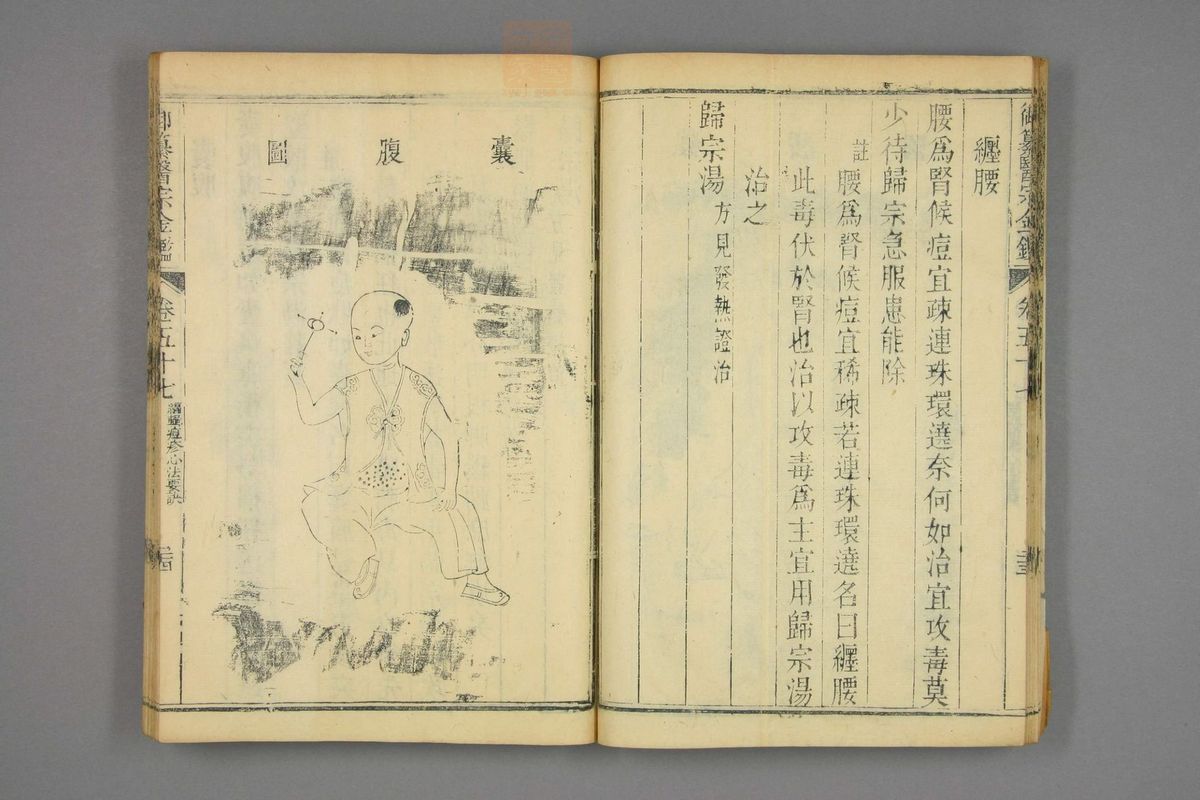 御纂醫宗金鑑 卷五十七
纏腰
腰爲腎候痘宜疎連珠環遶奈何如治宜攻毒莫
少待歸宗急服患能除
註 腰爲腎候痘宜稀疎若連珠環遶名曰纏腰
此毒伏於腎也治以攻毒爲主宜用歸宗湯
治之
歸宗湯 方見發熱證治
囊腹圖
御纂醫宗金鑑 卷五十七 編輯痘疹心法要訣